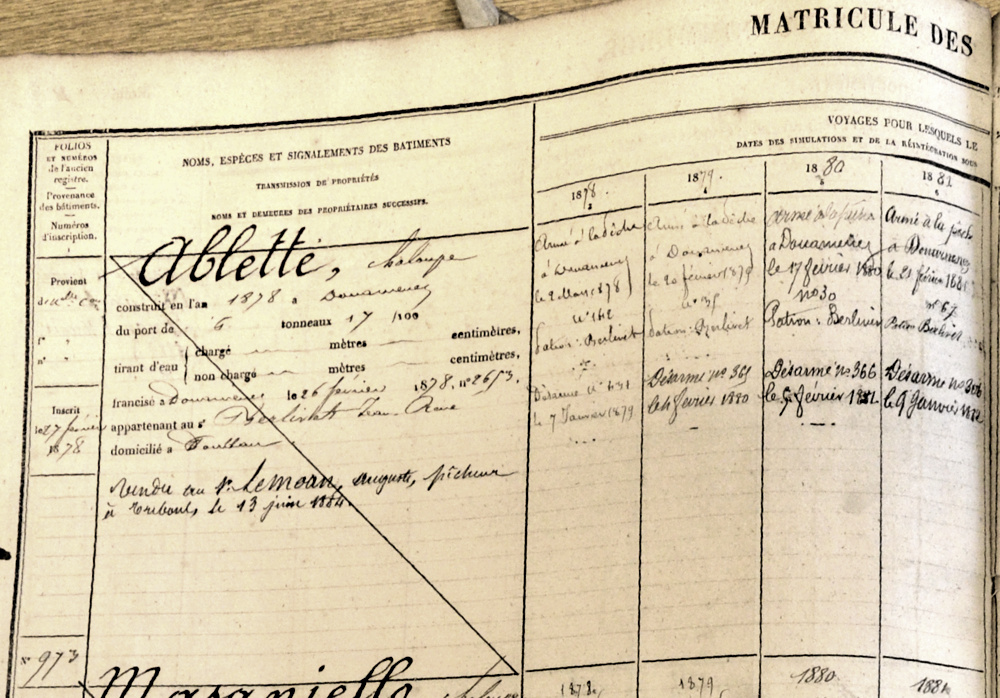 MATRICULE DES
FOLIOS
ET NUMÉROS
de l'ancien
registre.
Provenance
des bâtiments.
Numéros
d'inscription.
1
NOMS, ESPÈCES ET SIGNALEMENTS DES BATIMENTS
TRANSMISSION DE PROPRIÉTÉS
NOMS ET DEMEURES DES PROPRIÉTAIRES SUCCESSIFS.
VOYAGES POUR LESQUELS LE
DATES DES SIMULATIONS ET DE LA RÉINTÉGRATION SOUS
1878.
1879.
1880
1881
Provient
f°
n°
Inscrit
le 27 février
1878
Ablette, chaloupe
construit en l'an 1878 à Douarnenez
du port de 6 tonneaux 17 /100
tirant d'eau
chargé mètres centimètres,
non chargé mètres centimètres,
francisé à Douarnenez le 26 février 1878, n° 2653.
appartenant au sr Berlivet Jean René
domicilié à Poullan
Vendu au Sr. Lemoan, Auguste, pêcheur
à Tréboul, le 13 juin 1884.
Armé à la pêche
à Douarnenez
le 2 Mars 1878
n° 162
Patron: Berlivet
Désarmé n° 431
le 7 Janvier 1879
Armé à la pêche
à Douarnenez
le 20 février 1879
n° 35
Patron: Berlivet
Désarmé n° 361
le 4 février 1880
Armé à la pêche
à Douarnenez
le 17 février 1880
n° 30
Patron: Berlivet
Désarmé n° 366
le 5 février 1881
Armé à la pêche
à Douarnenez
le 21 février 1881
n° 67
Patron Berlivet
Désarmé n° 306
le 9 Janvier 1882
N° 973
Masaniello chaloupe
1878,
1879,
1880
1881